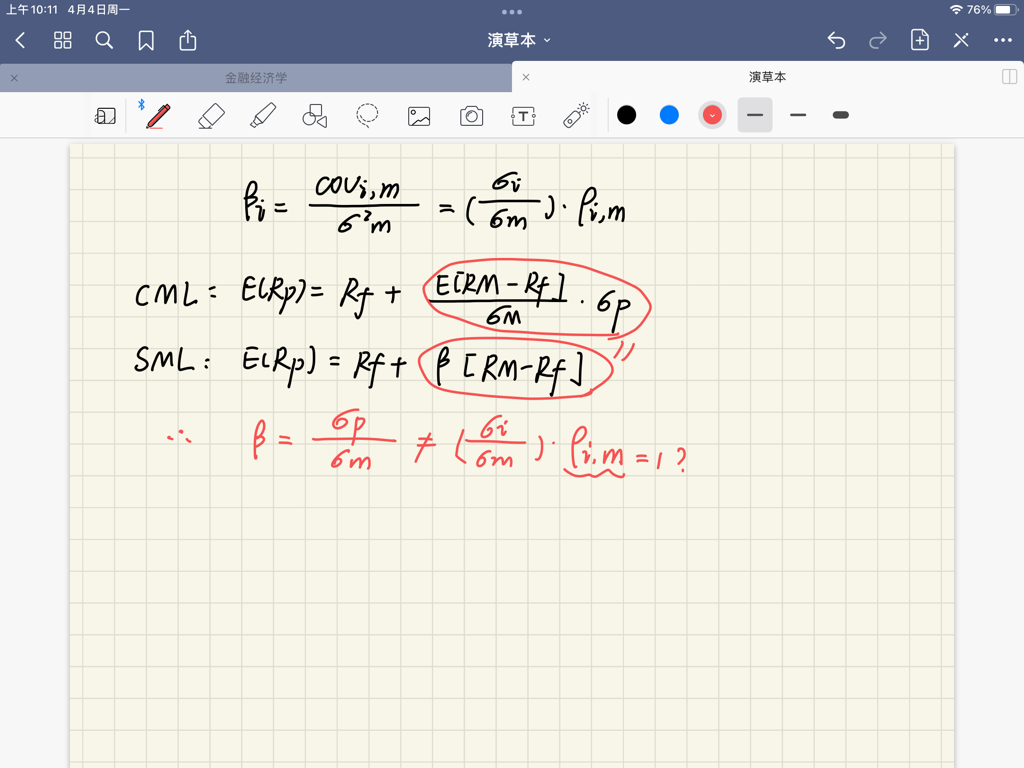 上午10:11 4月4日周一
76%
演草本
金融经济学
演草本
βi = covi,m / σ²m = (σi / σm) · ρi,m
CML: E(Rp) = Rf + E[RM - Rf] / σM · σp
SML: E(Rp) = Rf + β [RM - Rf]
∴ β = σp / σm ≠ (σi / σm) · ρi,m = 1 ?